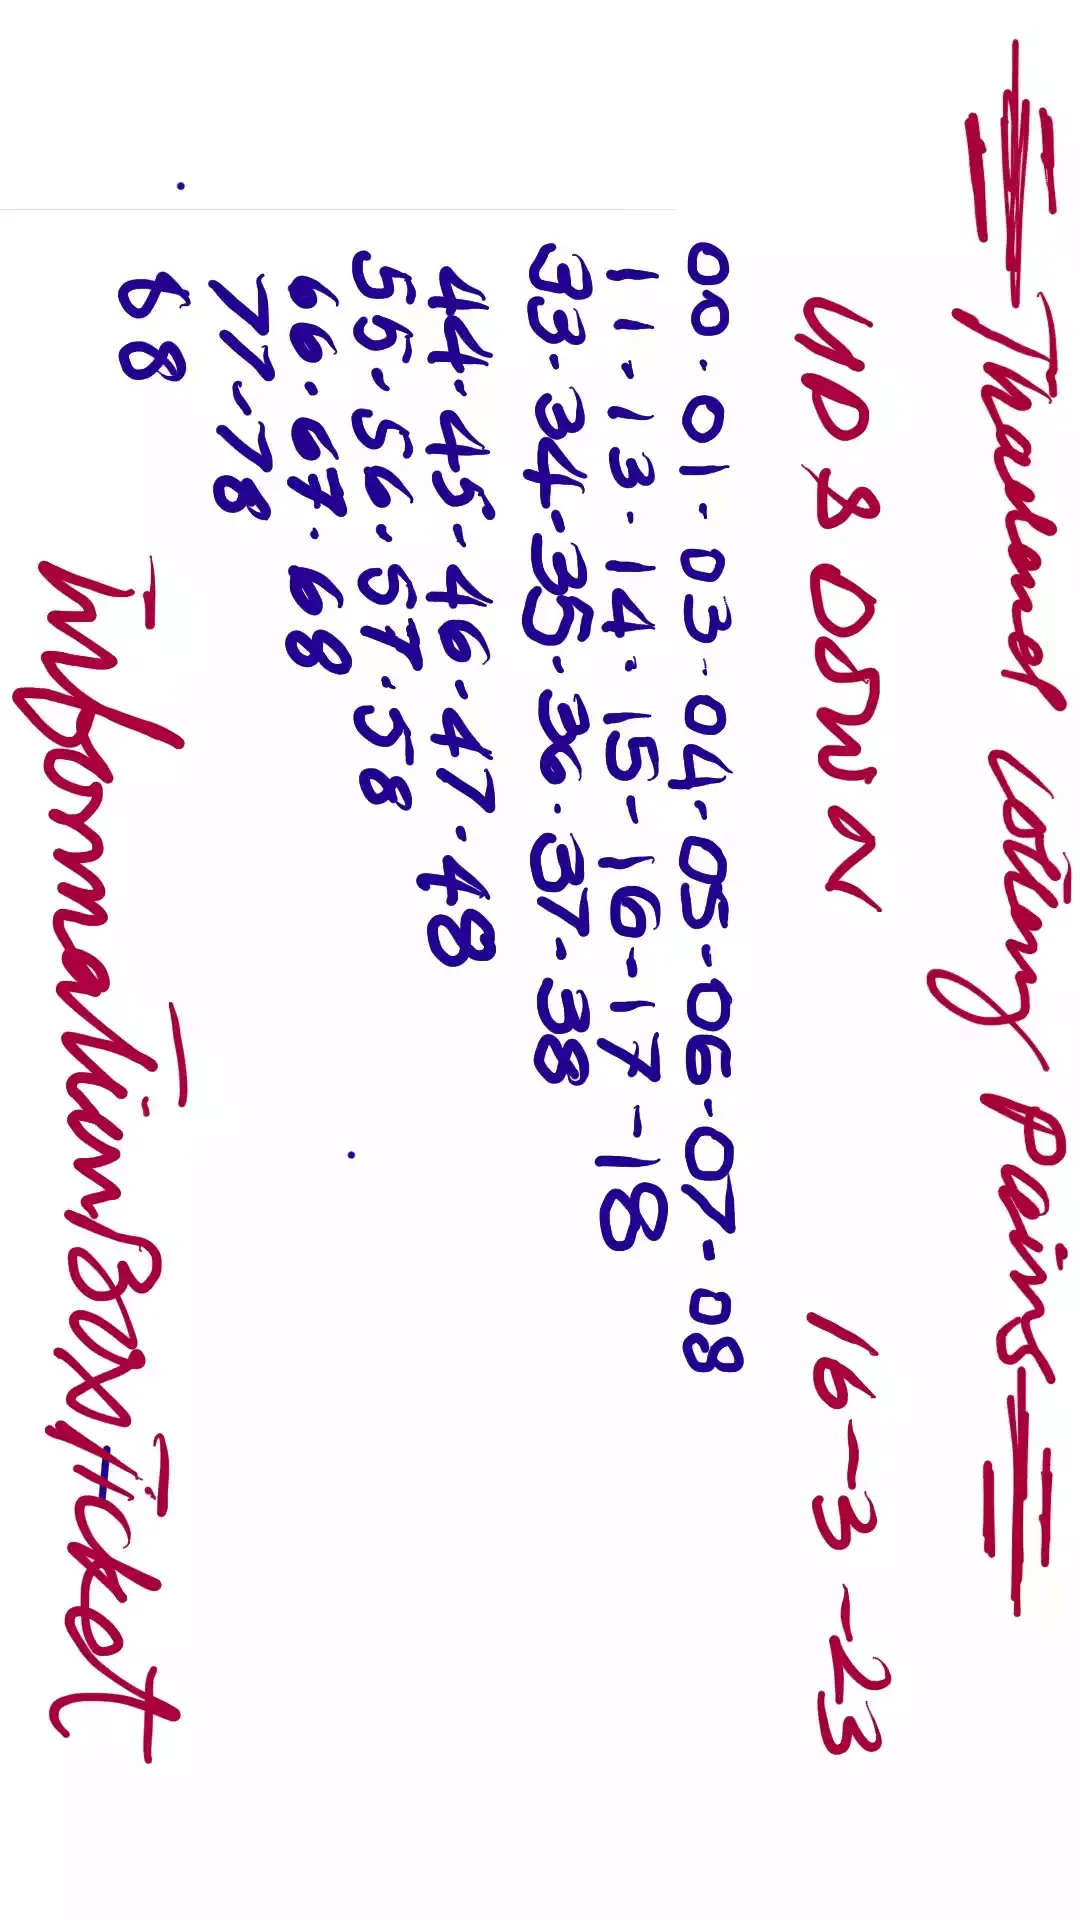 Thailand Lottery Pairs
UP & DOWN 16-3-23
00.01-03-04-05-06-07-08
11.13.14.15-16-17-18
33.34-35.36.37-38
44.45-46-47.48
55-56.57.58
66.67.68
77-78
88
InformationBoxTicket